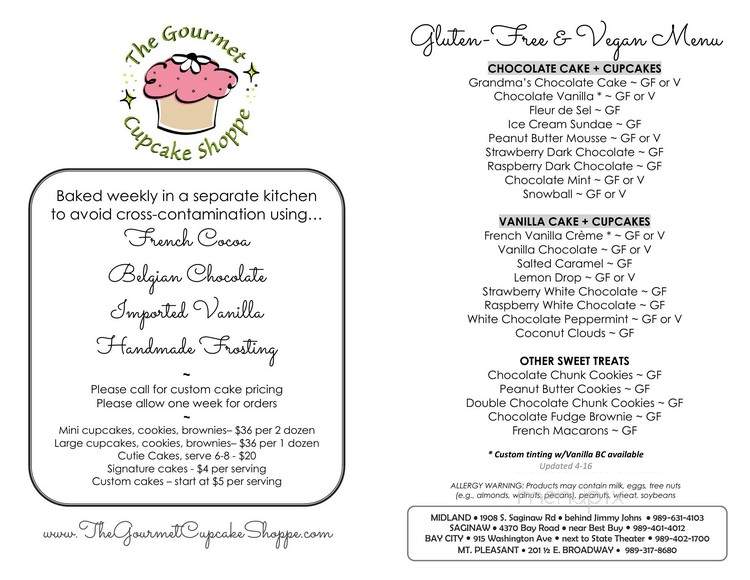 The Gourmet
Cupcake Shoppe
Baked weekly in a separate kitchen
to avoid cross-contamination using…
French Cocoa
Belgian Chocolate
Imported Vanilla
Handmade Frosting
~
Please call for custom cake pricing
Please allow one week for orders
~
Mini cupcakes, cookies, brownies– $36 per 2 dozen
Large cupcakes, cookies, brownies– $36 per 1 dozen
Cutie Cakes, serve 6-8 - $20
Signature cakes - $4 per serving
Custom cakes – start at $5 per serving
www.TheGourmetCupcakeShoppe.com
Gluten-Free & Vegan Menu
CHOCOLATE CAKE + CUPCAKES
Grandma's Chocolate Cake ~ GF or V
Chocolate Vanilla * ~ GF or V
Fleur de Sel ~ GF
Ice Cream Sundae ~ GF
Peanut Butter Mousse ~ GF or V
Strawberry Dark Chocolate ~ GF
Raspberry Dark Chocolate ~ GF
Chocolate Mint ~ GF or V
Snowball ~ GF or V
VANILLA CAKE + CUPCAKES
French Vanilla Crème * ~ GF or V
Vanilla Chocolate ~ GF or V
Salted Caramel ~ GF
Lemon Drop ~ GF or V
Strawberry White Chocolate ~ GF
Raspberry White Chocolate ~ GF
White Chocolate Peppermint ~ GF or V
Coconut Clouds ~ GF
OTHER SWEET TREATS
Chocolate Chunk Cookies ~ GF
Peanut Butter Cookies ~ GF
Double Chocolate Chunk Cookies ~ GF
Chocolate Fudge Brownie ~ GF
French Macarons ~ GF
* Custom tinting w/Vanilla BC available
Updated 4-16
ALLERGY WARNING: Products may contain milk, eggs, tree nuts
(e.g., almonds, walnuts, pecans), peanuts, wheat, soybeans
menupix
MIDLAND • 1908 S. Saginaw Rd • behind Jimmy Johns • 989-631-4103
SAGINAW • 4370 Bay Road • near Best Buy • 989-401-4012
BAY CITY • 915 Washington Ave • next to State Theater • 989-402-1700
MT. PLEASANT • 201 ½ E. BROADWAY • 989-317-8680